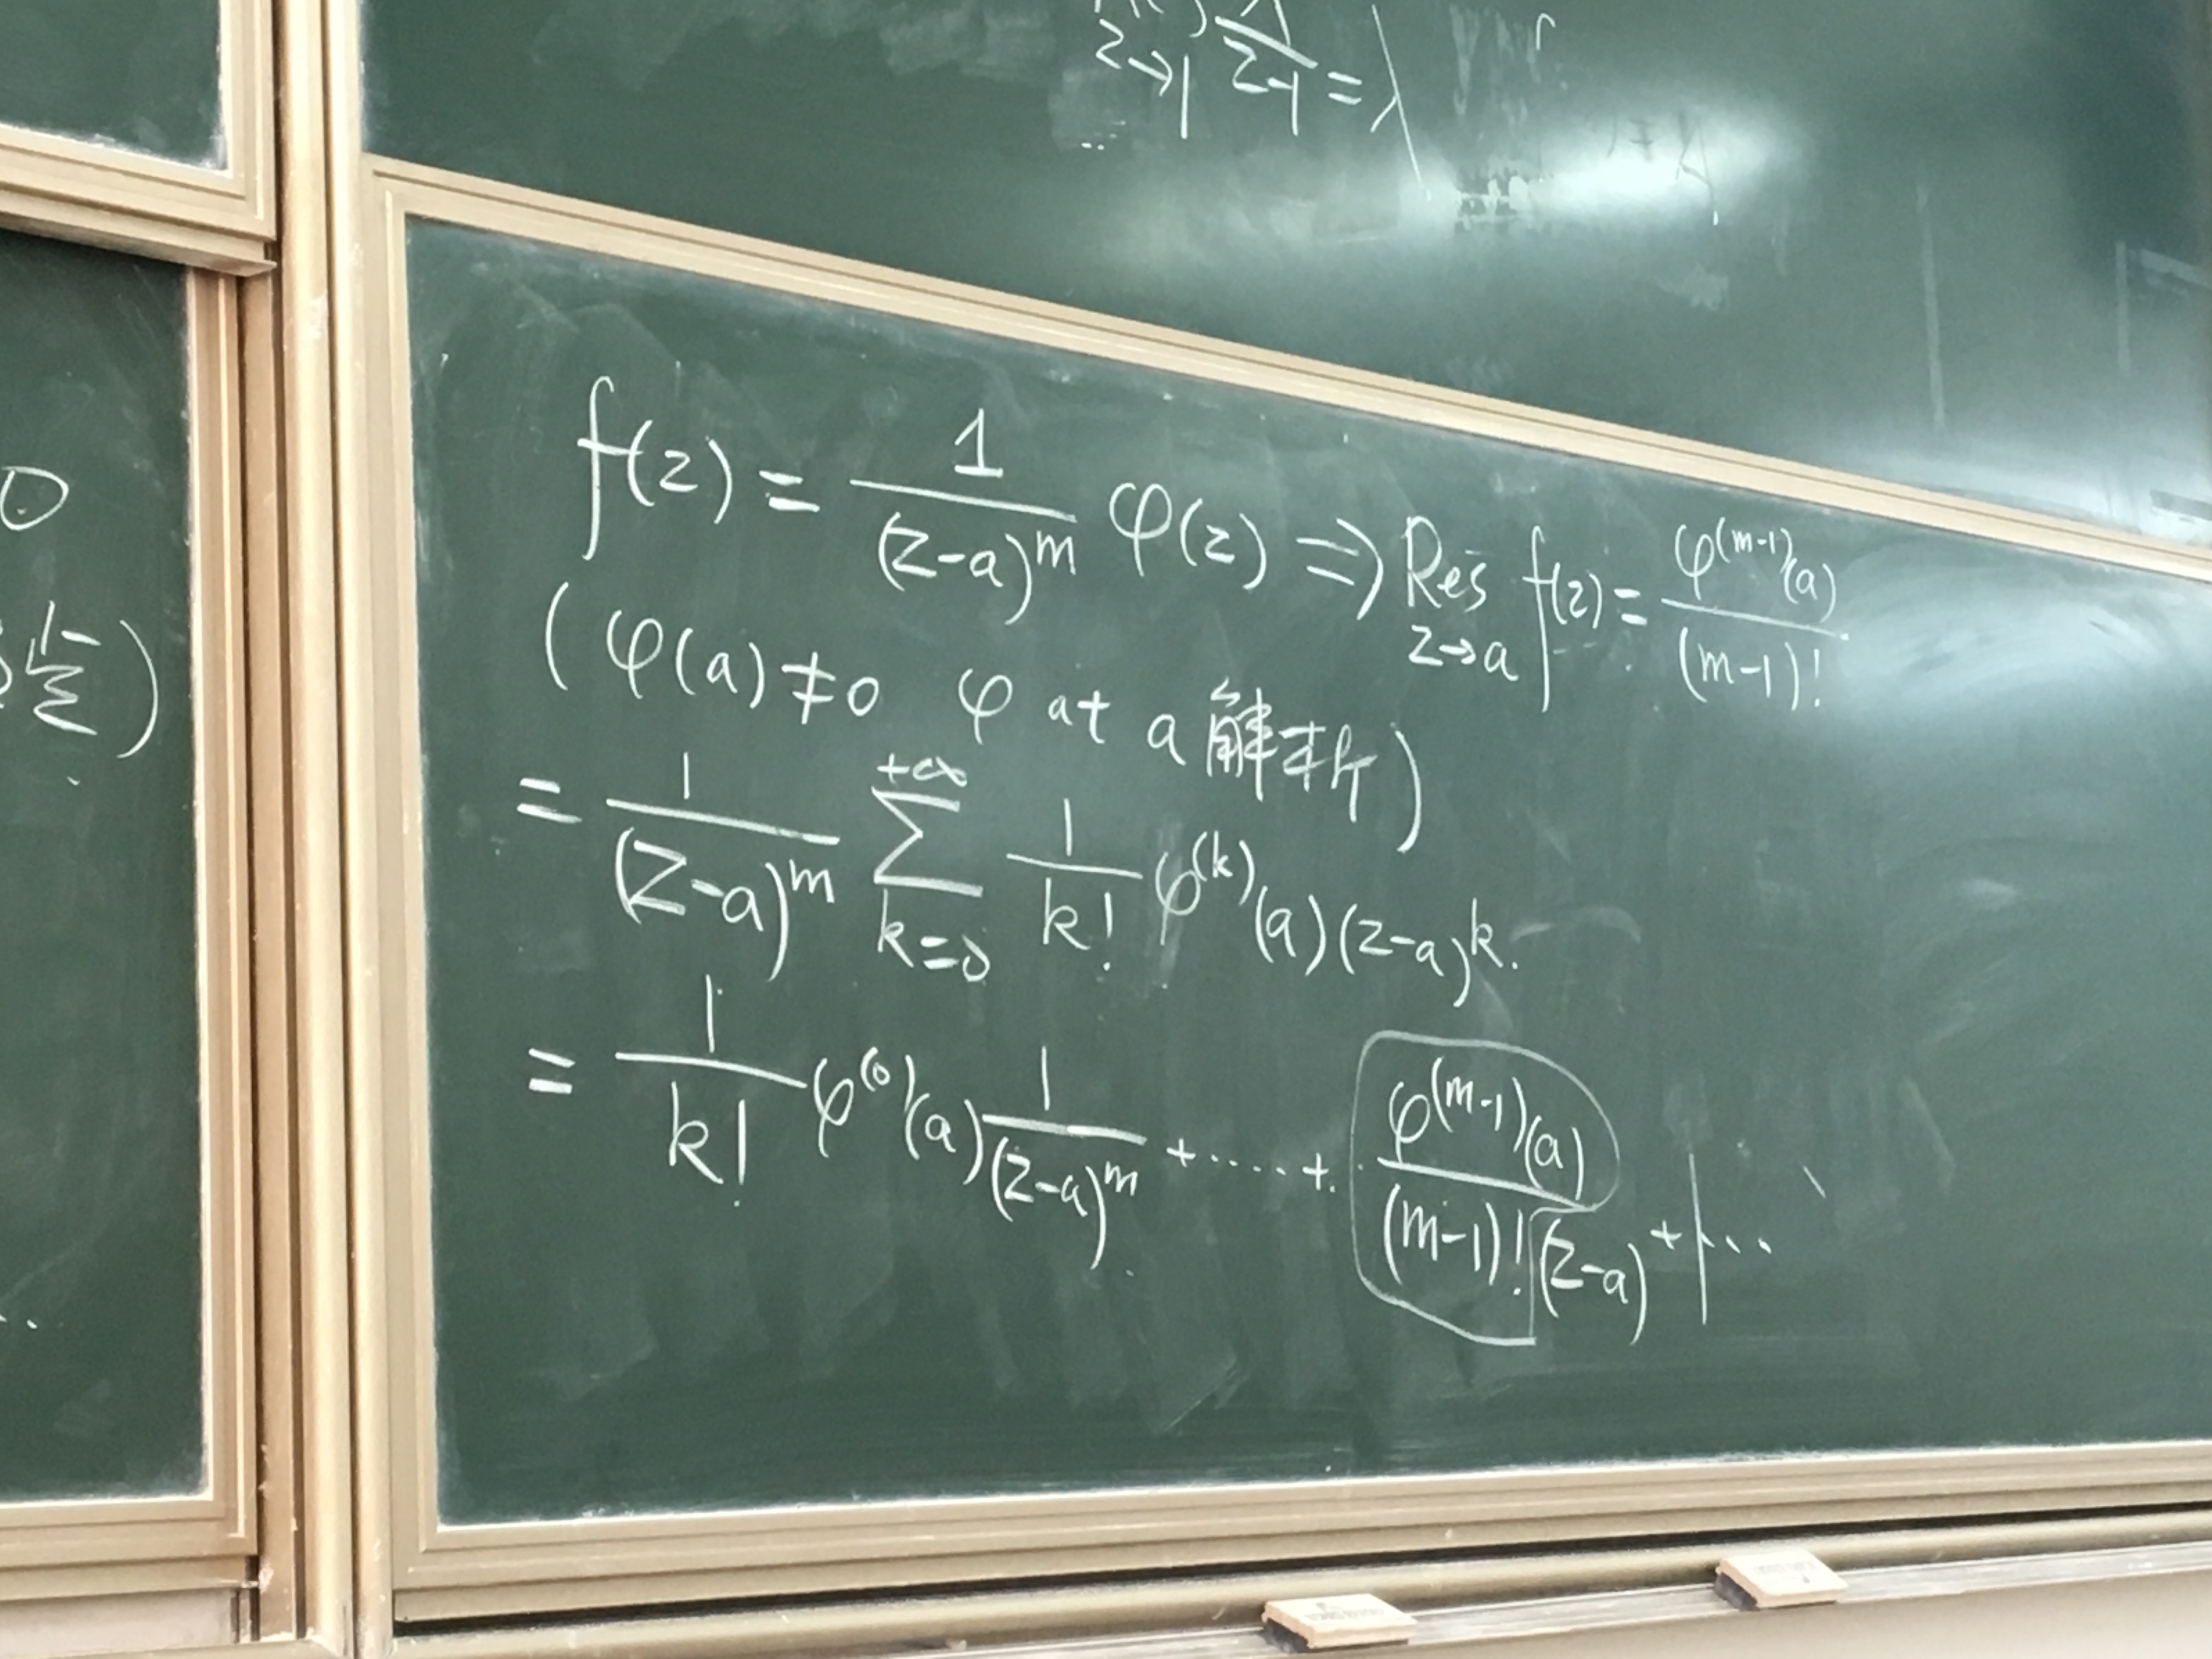 z→1 z-1 = λ
0
f(z) = 1/(z-a)^m φ(z) ⇒ Res z→a f(z) = φ^(m-1)(a)/(m-1)!
( φ(a)≠0 φ at a 解析 )
= 1/(z-a)^m ∑ k=0 +∞ 1/k! φ^(k)(a)(z-a)^k.
= 1/k! φ^(0)(a) 1/(z-a)^m + ····· + φ^(m-1)(a)/(m-1)!(z-a) + ···